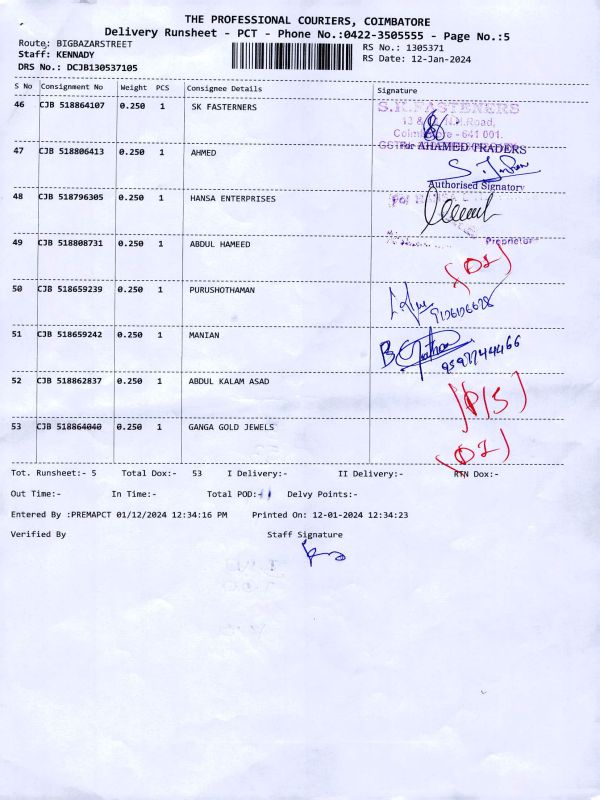 THE PROFESSIONAL COURIERS, COIMBATORE
Delivery Runsheet - PCT - Phone No.:0422-3505555 - Page No.:5
Route: BIGBAZARSTREET RS No.: 1305371
Staff: KENNADY RS Date: 12-Jan-2024
DRS No.: DCJB130537105
S No Consignment No Weight PCS Consignee Details Signature
46 CJB 518864107 0.250 1 SK FASTERNERS
S.K.FASTENERS
N.H.Road,
Coimbatore - 641 001.
47 CJB 518806413 0.250 1 AHMED
For AHAMED TRADERS
Authorised Signatory
48 CJB 518796305 0.250 1 HANSA ENTERPRISES
For
Proprietor
49 CJB 518808731 0.250 1 ABDUL HAMEED
50 CJB 518659239 0.250 1 PURUSHOTHAMAN
51 CJB 518659242 0.250 1 MANIAN
9597744466
52 CJB 518862837 0.250 1 ABDUL KALAM ASAD
53 CJB 518864040 0.250 1 GANGA GOLD JEWELS
Tot. Runsheet:- 5 Total Dox:- 53 I Delivery:- II Delivery:- RTN Dox:-
Out Time:- In Time:- Total POD:- Delvy Points:-
Entered By :PREMAPCT 01/12/2024 12:34:16 PM Printed On: 12-01-2024 12:34:23
Verified By Staff Signature